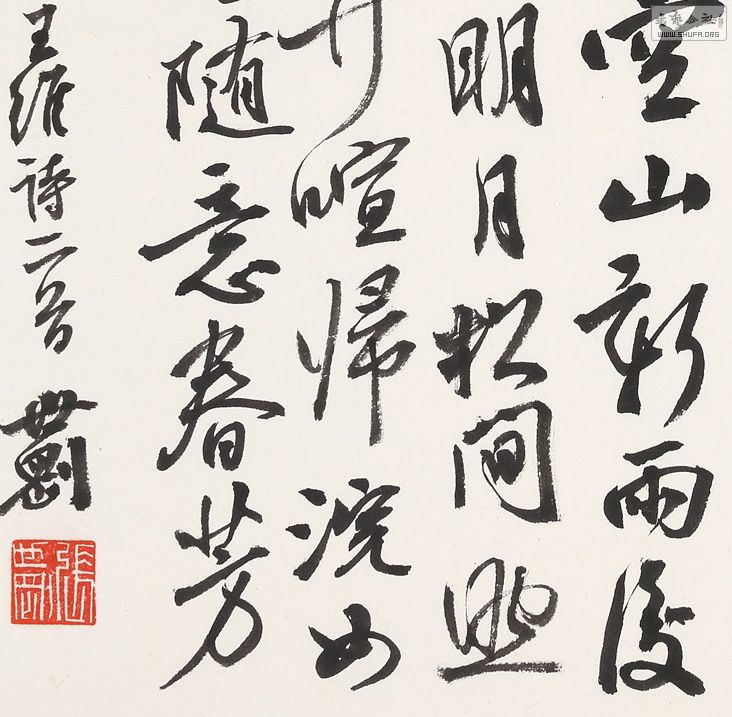 空山新雨後
明月松間照
竹喧帰浣女
随意春芳
王維詩二首
世剛
WWW.SHUFA.ORG